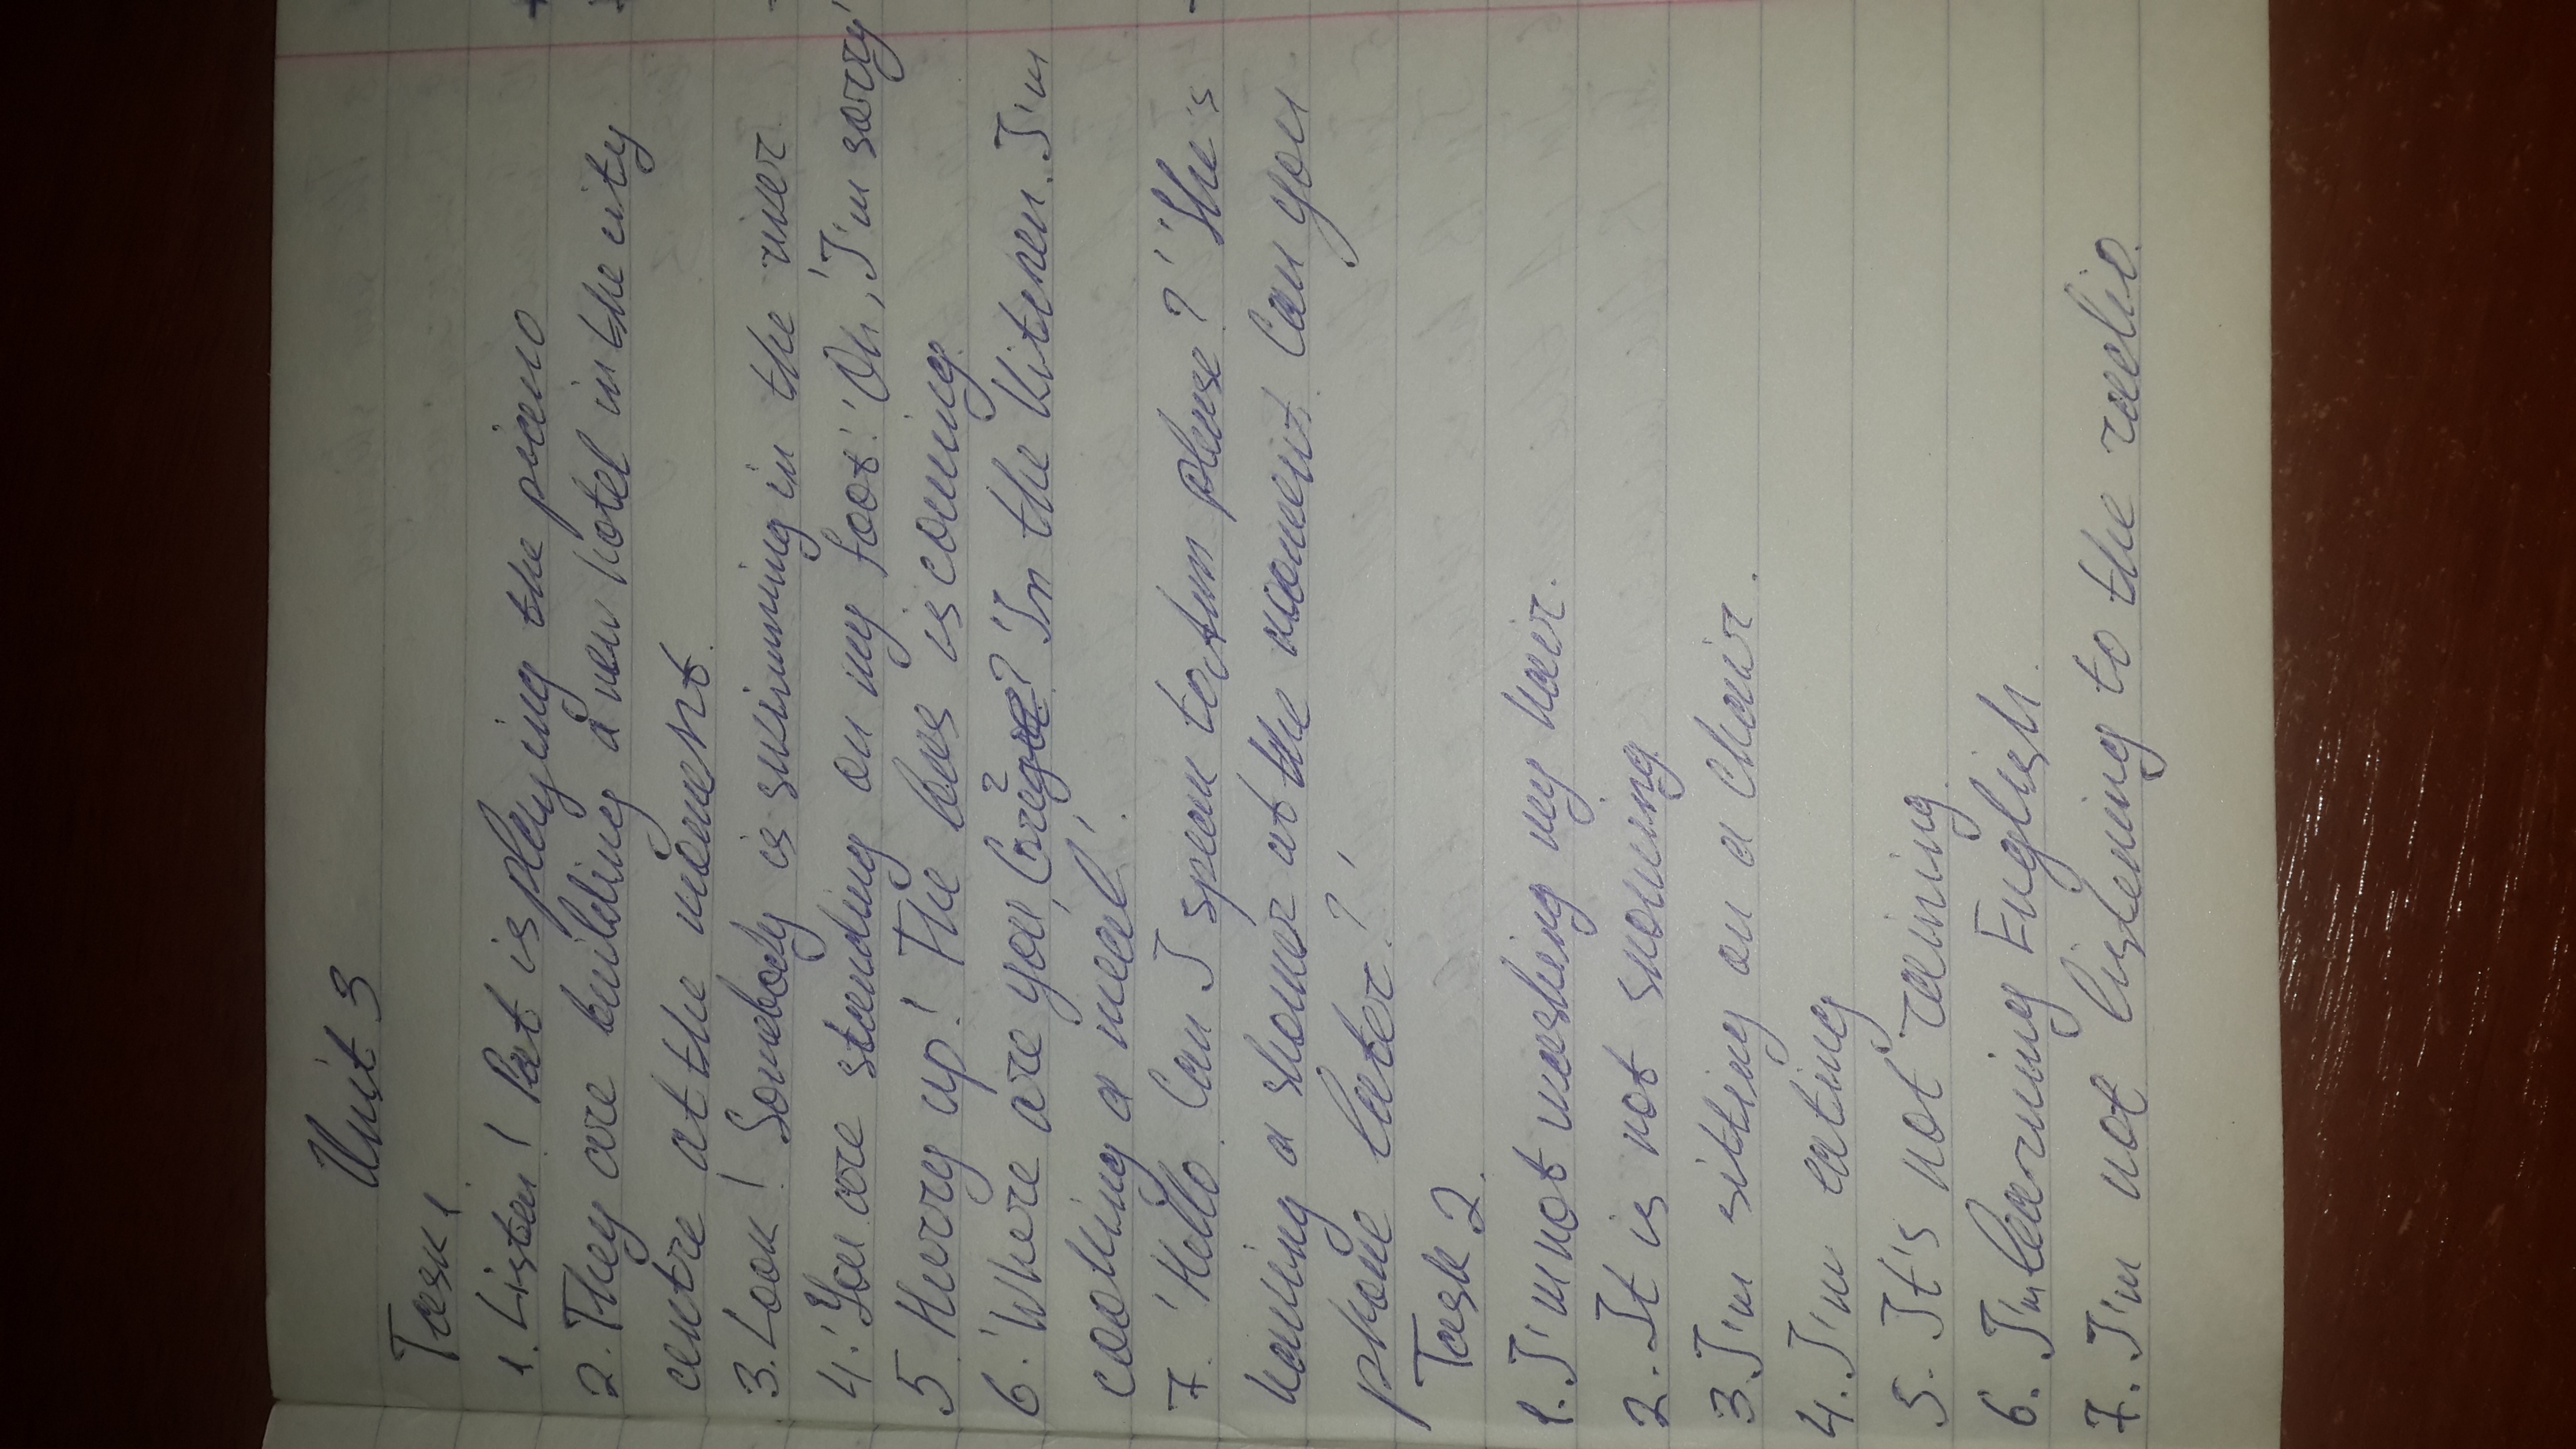 Unit 3
Task 1.
1. Listen! Pat is playing the piano
2. They are building a new hotel in the city
centre at the moment.
3. Look! Somebody is swimming in the river.
4. 'You are standing on my foot.' 'Oh, 'I'm sorry'
5. Hurry up! The bus is coming.
6. 'Where are you, ? 'In the kitchen. I'm
cooking a meal'.
7. 'Hello. Can I speak to Ann please?' 'She's
having a shower at the moment. Can you
phone later?'
Task 2.
1. I'm not washing my hair.
2. It is not snowing.
3. I'm sitting on a chair.
4. I'm eating
5. It's not raining.
6. I'm learning English.
7. I'm not listening to the radio.